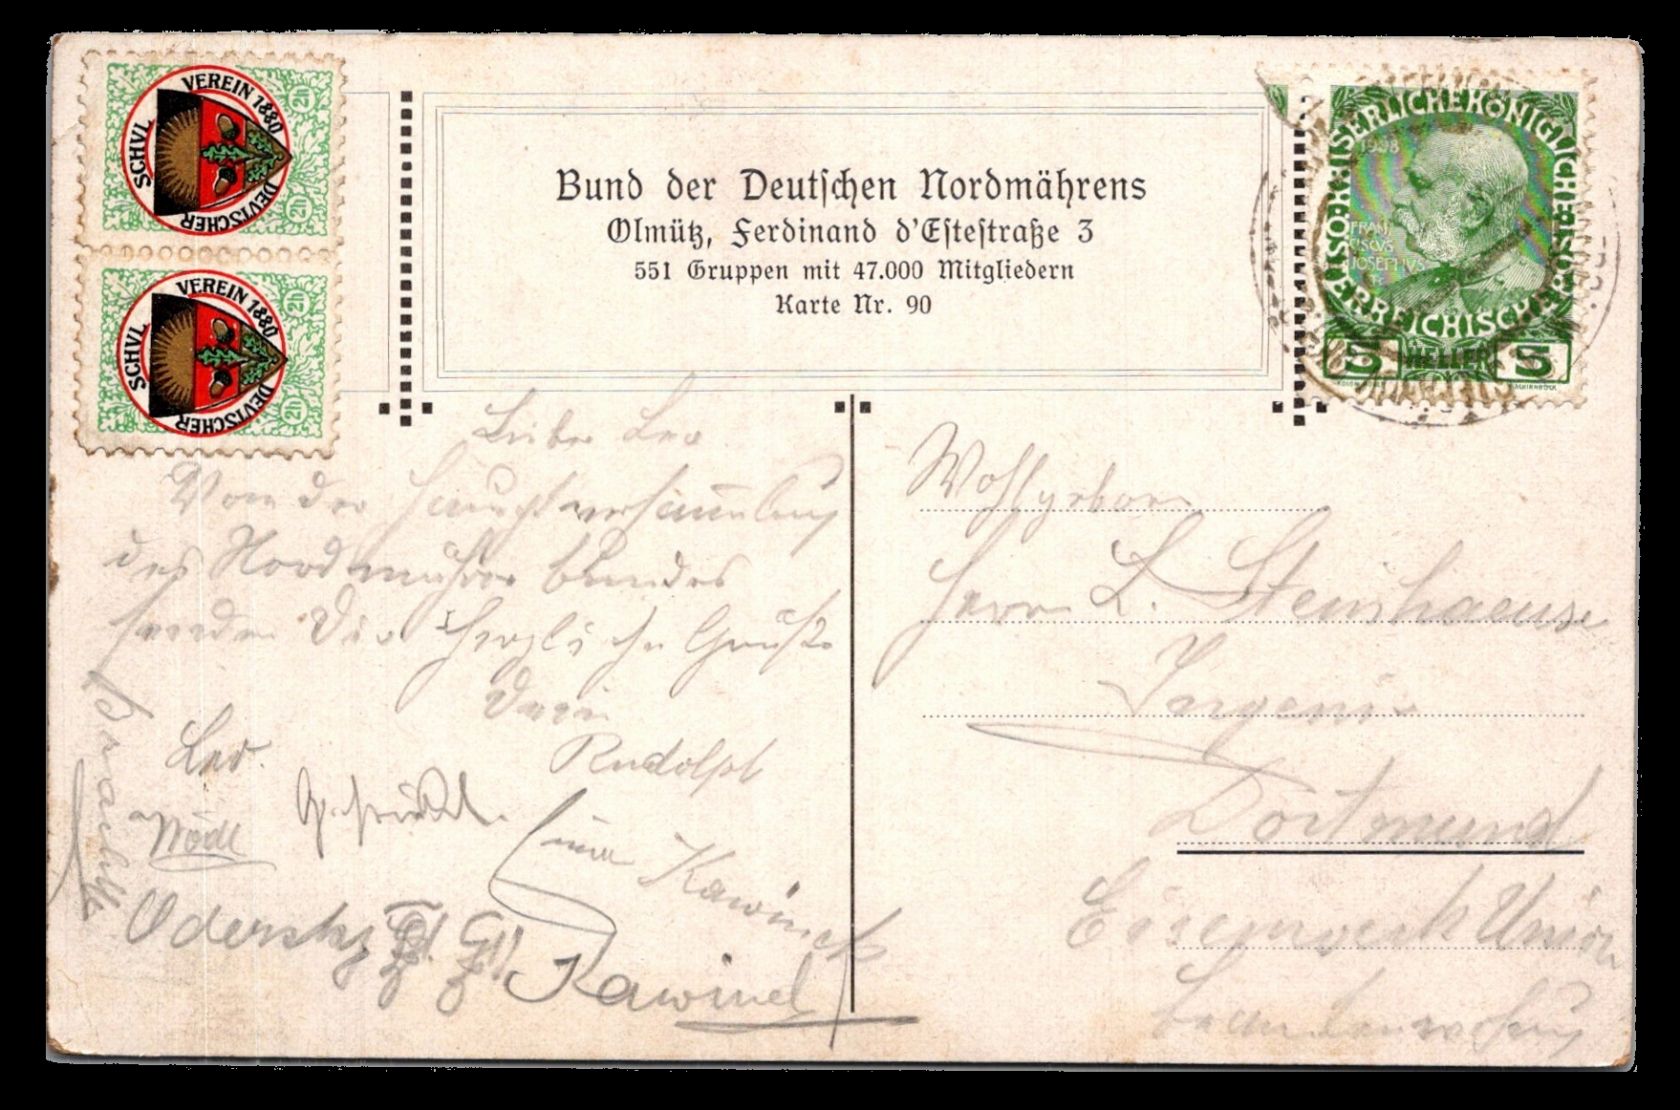 DEVTSCHER SCHVL VEREIN 1880
2h 2h
DEVTSCHER SCHVL VEREIN 1880
2h 2h
Bund der Deutschen Nordmährens
Olmütz, Ferdinand d'Estestraße 3
551 Gruppen mit 47.000 Mitgliedern
Karte Nr. 90
KAISERLICHE KÖNIGLICHE ÖSTERREICHISCHE POST
1908
FRAN
CISCVS
JOSEPHVS
5 HELLER 5
Lieber Leo
Von der Hauptversammlung
des Nordmährer Bundes
senden Dir herzliche Grüße
Dein
Rudolph
Leo.
Mödl
Odersky
Kawinek
Kawinek
Wohlgeboren
Herrn L. Steinhaeuse
Dortmund
Eisenwerk Union